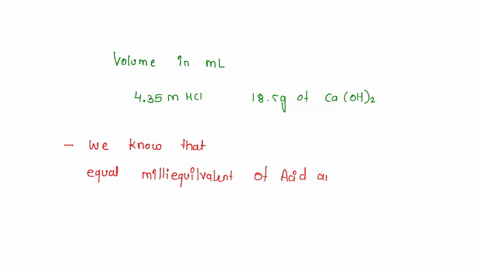 Volume in mL
4.35 m HCl 18.5g of Ca(OH)2
- We know that
equal milliequilvalent of Acid